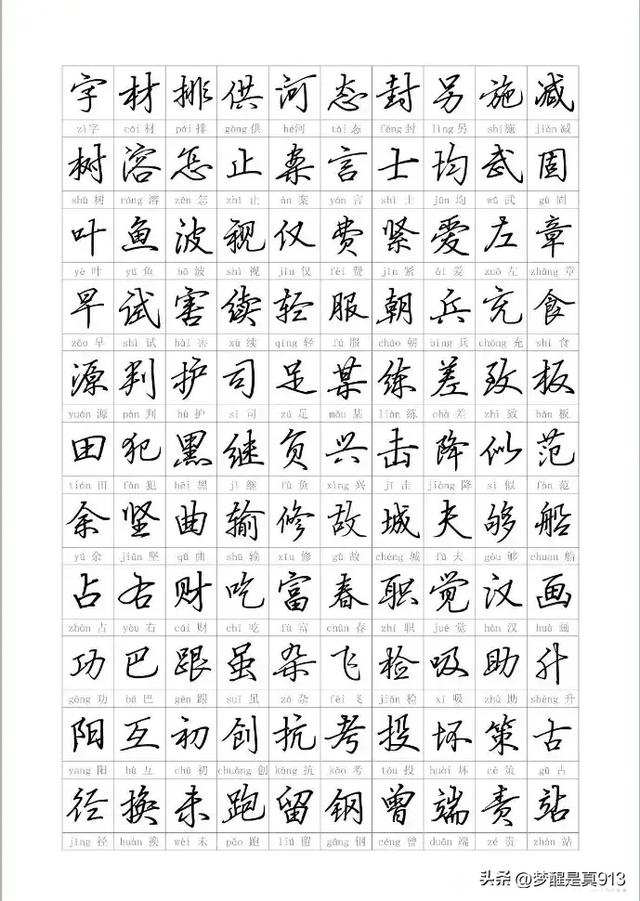 字 材 排 供 河 态 封 另 施 减
zì字 cái材 pái排 gōng供 hé河 tài态 fēng封 lìng另 shī施 jiǎn减
树 溶 怎 止 案 言 士 均 武 固
shù树 róng溶 zěn怎 zhǐ止 àn案 yán言 shì士 jūn均 wǔ武 gù固
叶 鱼 波 视 仅 费 紧 爱 左 章
yè叶 yú鱼 bō波 shì视 jǐn仅 fèi费 jǐn紧 ài爱 zuǒ左 zhāng章
早 试 害 续 轻 服 朝 兵 充 食
zǎo早 shì试 hài害 xù续 qīng轻 fú服 cháo朝 bīng兵 chōng充 shí食
源 判 护 司 足 某 练 差 致 板
yuán源 pàn判 hù护 sī司 zú足 mǒu某 liàn练 chà差 zhì致 bǎn板
田 犯 黑 继 负 兴 击 降 似 范
tián田 fàn犯 hēi黑 jì继 fù负 xìng兴 jī击 jiàng降 sì似 fàn范
余 坚 曲 输 修 故 城 夫 够 船
yú余 jiān坚 qǔ曲 shū输 xiū修 gù故 chéng城 fū夫 gòu够 chuán船
占 右 财 吃 富 春 职 觉 汉 画
zhàn占 yòu右 cái财 chī吃 fù富 chūn春 zhí职 jué觉 hàn汉 huà画
功 巴 跟 虽 杂 飞 检 吸 助 升
gōng功 bā巴 gēn跟 suī虽 zá杂 fēi飞 jiǎn检 xī吸 zhù助 shēng升
阳 互 初 创 抗 考 投 坏 策 古
yáng阳 hù互 chū初 chuàng创 kàng抗 kǎo考 tóu投 huài坏 cè策 gǔ古
径 换 未 跑 留 钢 曾 端 责 站
jìng径 huàn换 wèi未 pǎo跑 liú留 gāng钢 céng曾 duān端 zé责 zhàn站
头条 @梦醒是真913